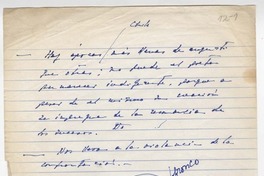 Chile
— Hay épocas más llenas de angustia
que otras; no puede el poeta
permanecer indiferente, porque a
pesar de él mismo su creación
se impregna de la resonancia de
los sucesos.
— Nos lleva a la violencia de la
confrontación.